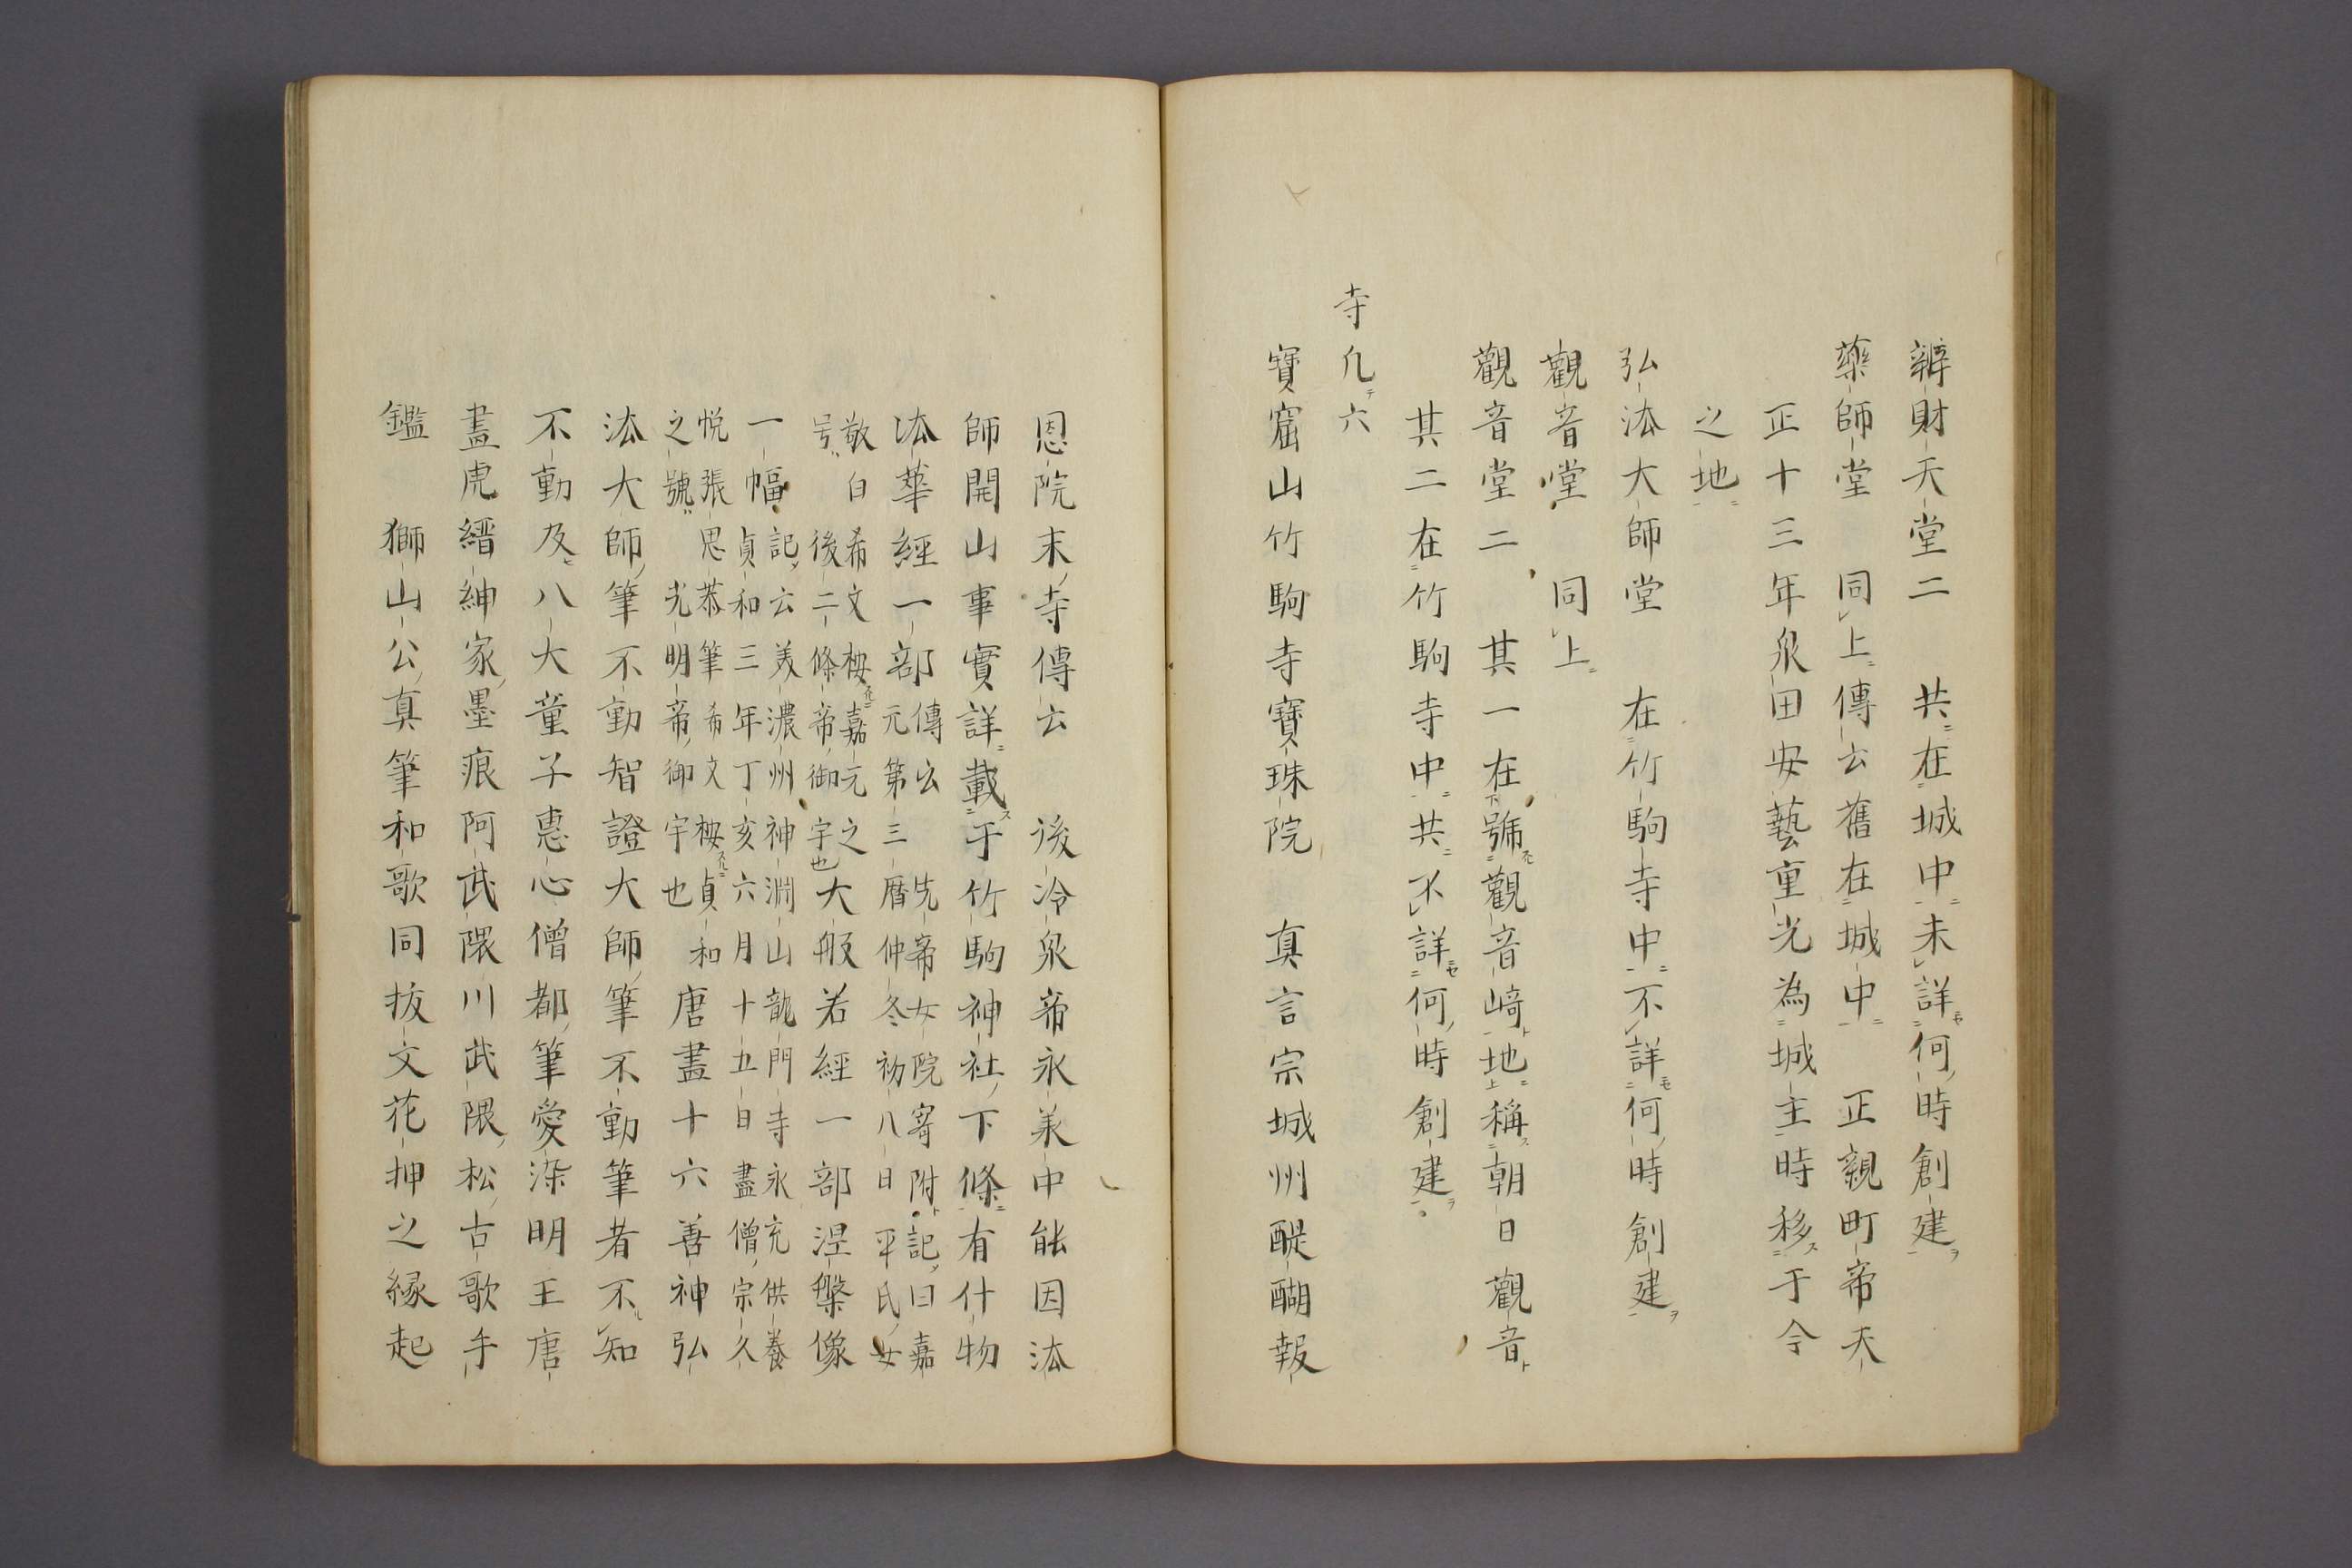 辨財天堂二　共在城中未詳何時創建
藥師堂　同上傳云舊在城中　正親町帝天
正十三年泉田安藝重光為城主時移于今
之地
弘法大師堂　在竹駒寺中不詳何時創建
觀音堂　同上
觀音堂二　其一在號觀音崎地稱朝日觀音
其二在竹駒寺中共不詳何時創建
寺凢六
寶窟山竹駒寺寶珠院　真言宗城州醍醐報
恩院末寺傳云　後冷泉帝永美中能因法
師開山事實詳載于竹駒神社下條有什物
法華經一部傳云　先帝女院寄附記曰嘉
元第三曆仲冬初八日平氏女
敬白希文按嘉元之
号後二條帝御宇也大般若經一部涅槃像
一幅記云美濃州神淵山龍門寺永充供養
貞和三年丁亥六月十五日畫僧宗久
悦張思恭筆希文按貞和
之號光明帝御宇也唐畫十六善神弘
法大師筆不動智證大師筆不動筆者不知
不動及八大童子惠心僧都筆愛染明王唐
畫虎縉紳家墨痕阿武隈川武隈松古歌手
鑑　獅山公真筆和歌同扳文花押之縁起